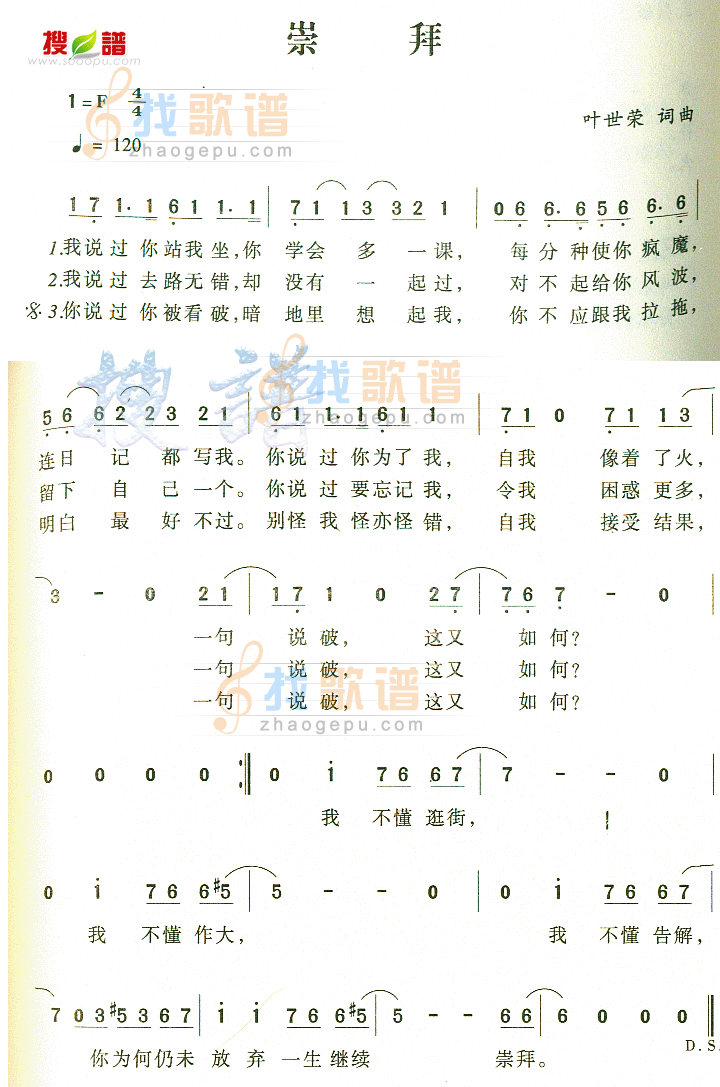 搜 谱
www.sooopu.com
崇 拜
1=F 4/4
叶世荣 词曲
♩= 120
找歌谱
zhaogepu.com
1 7 1· 1 6 1 1· 1 | 7 1 1 3 3 2 1 | 0 6 6· 6 5 6 6· 6
1.我说过你站我坐,你 学会 多 一课, 每分种使你疯魔,
2.我说过去路无错,却 没有 一 起过, 对不起给你风波,
3.你说过你被看破,暗 地里 想 起我, 你不应跟我拉拖,
搜 谱
找歌谱
zhaogepu.com
5 6 6 2 2 3 2 1 | 6 1 1· 1 6 1 1 | 7 1 0 7 1 1 3
连日 记 都 写我。你说 过你为了我, 自我 像着了火,
留下 自 己 一个。你说 过要忘记我, 令我 困惑更多,
明白 最 好 不过。别怪 我怪亦怪错, 自我 接受结果,
3 - 0 2 1 | 1 7 1 0 2 7 | 7 6 7 - 0
一句 说破, 这又 如何?
一句 说破, 这又 如何?
一句 说破, 这又 如何?
找歌谱
zhaogepu.com
0 0 0 0 :‖ 0 i 7 6 6 7 | 7 - - 0
我 不懂逛街,
0 i 7 6 6 #5 | 5 - - 0 | 0 i 7 6 6 7
我 不懂作大, 我 不懂告解,
7 0 3 #5 3 6 7 | i i 7 6 6 #5 | 5 - - 6 6 | 6 0 0 0
D.S.
你为何仍未 放 弃 一生继续 崇拜。